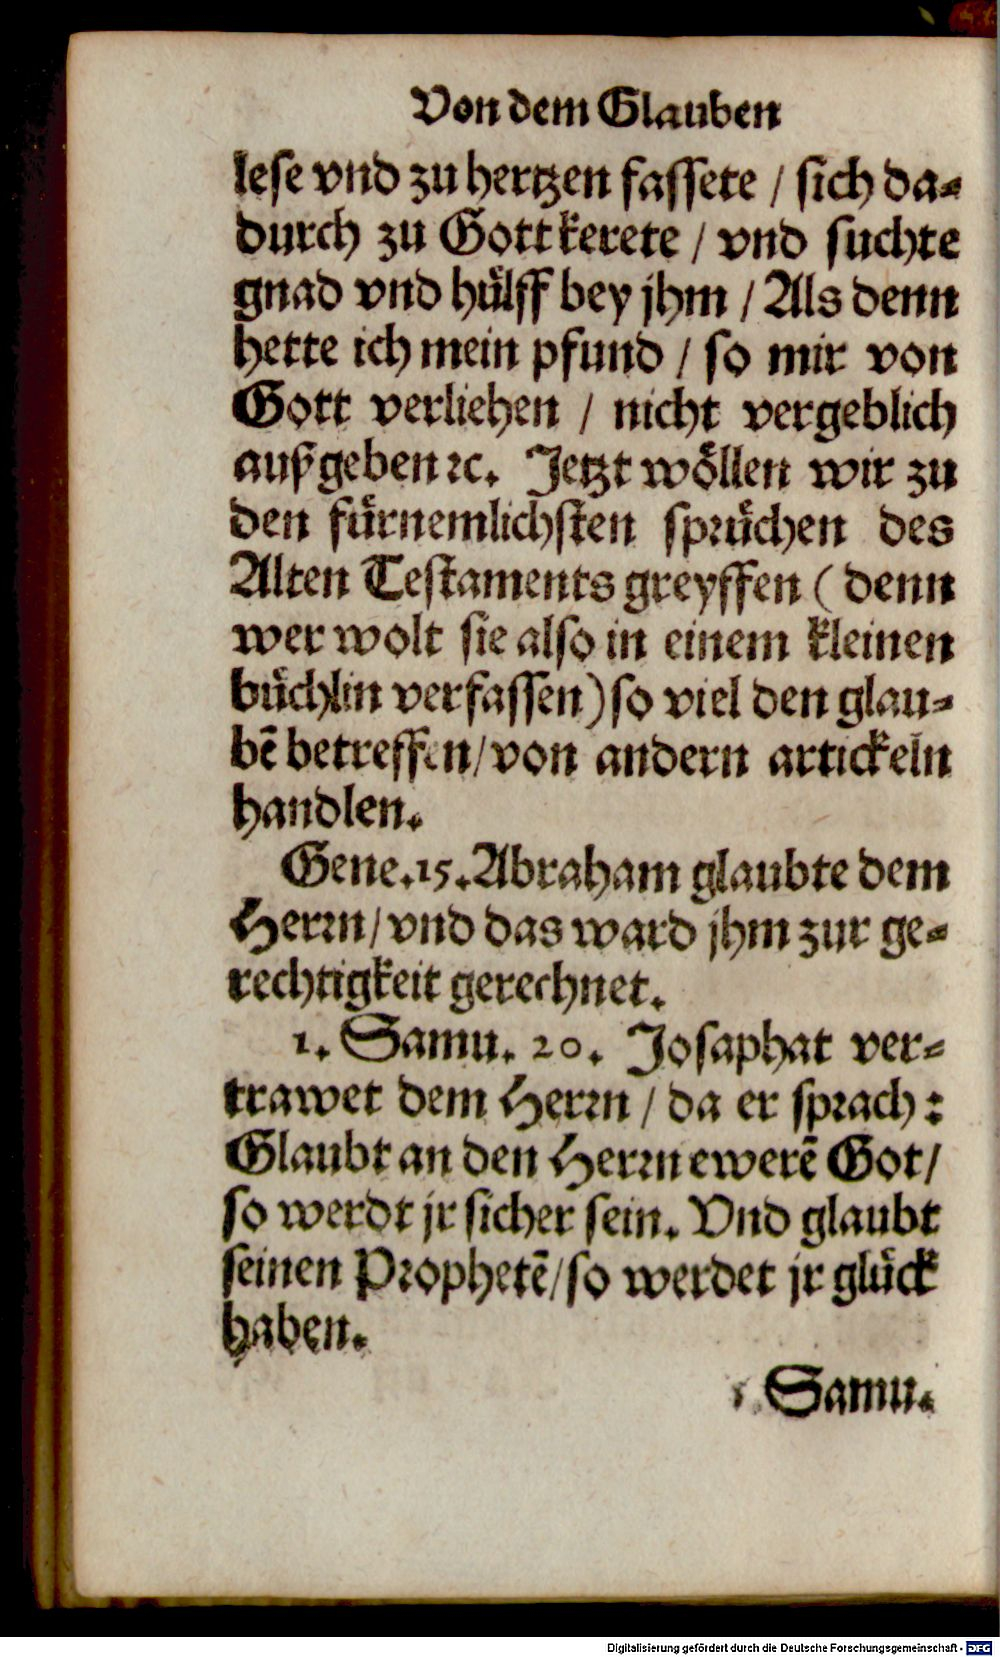 Von dem Glauben
lese vnd zu hertzen fassete / sich da⸗
durch zu Gott kerete / vnd suchte
gnad vnd huͤlff bey jhm / Als denn
hette ich mein pfund / so mir von
Gott verliehen / nicht vergeblich
außgeben ꝛc. Jetzt woͤllen wir zu
den fuͤrnemlichsten spruͤchen des
Alten Testaments greyffen ( denn
wer wolt sie also in einem kleinen
buͤchlin verfassen) so viel den glau⸗
bẽ betreffen / von andern artickeln
handlen.
Gene. 15. Abraham glaubte dem
Herrn / vnd das ward jhm zur ge⸗
rechtigkeit gerechnet.
1. Samu. 20. Josaphat ver⸗
trawet dem Herrn / da er sprach :
Glaubt an den Herrn ewerẽ Got /
so werdt jr sicher sein. Vnd glaubt
seinen Prophetẽ / so werdet jr gluͤck
haben.
Samu.
Digitalisierung gefördert durch die Deutsche Forschungsgemeinschaft - DFG